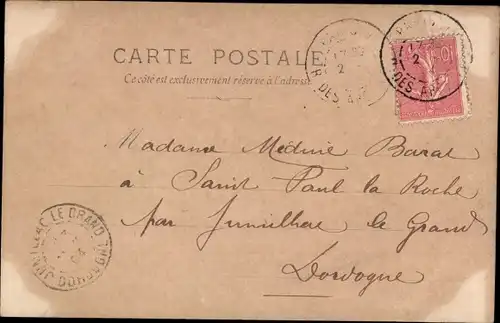 CARTE POSTALE
Ce côté est exclusivement réservé à l'adresse
Madame Médine Barat
à Saint Paul la Roche
par Jumilhac le Grand
Dordogne
JUMILHAC LE GRAND DORDOGNE
04
R. DES
R. DES
10